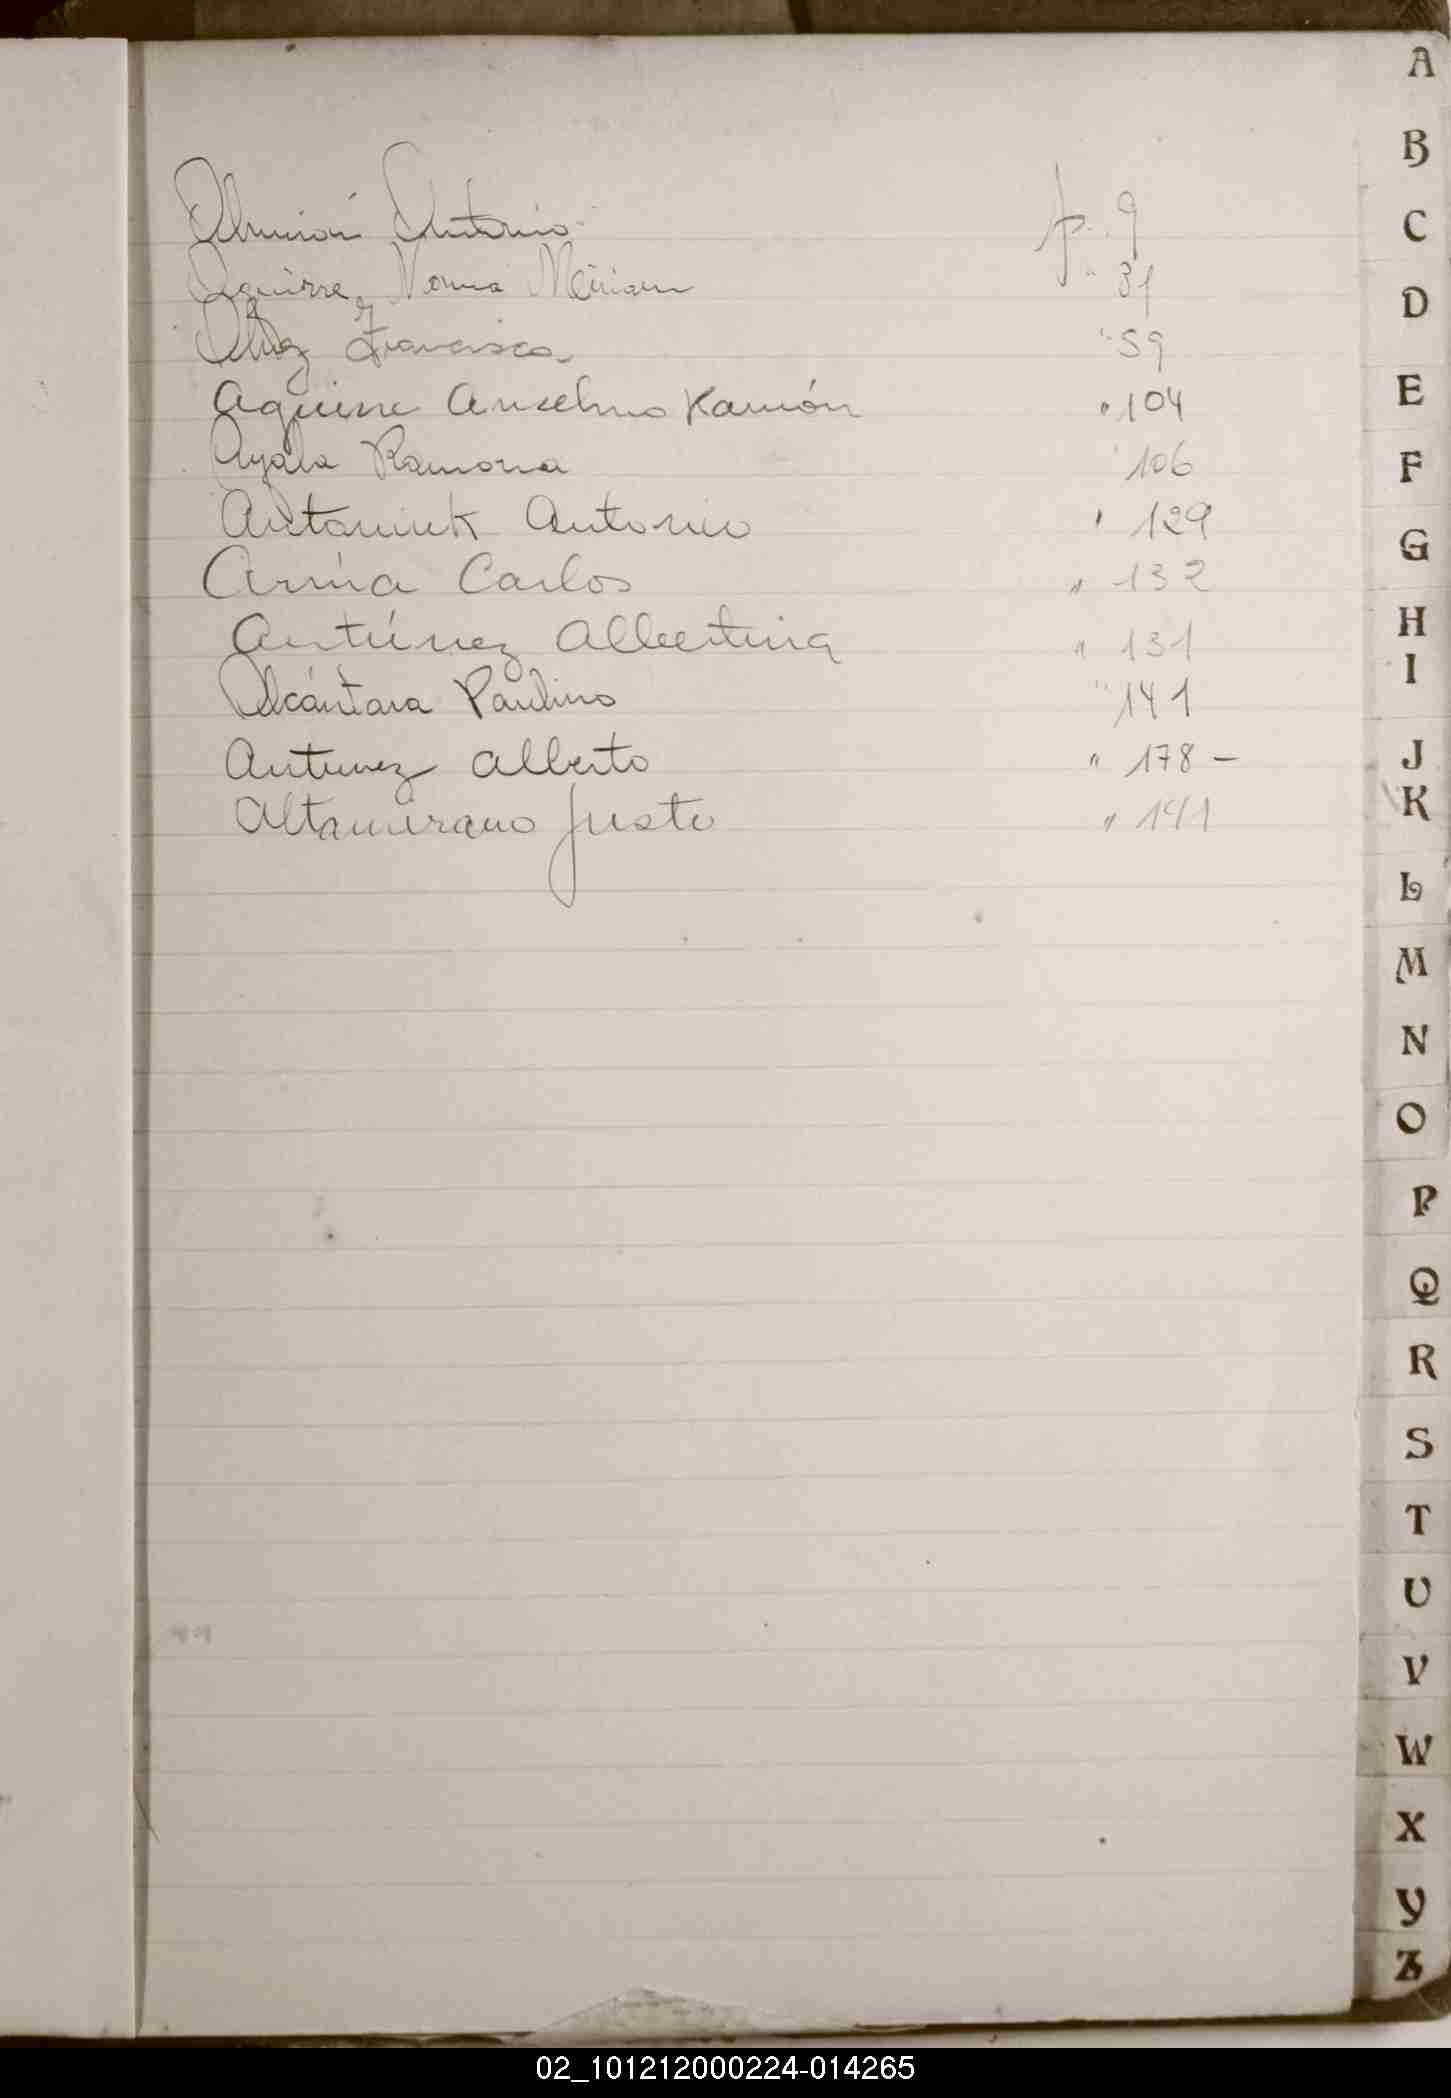 Almirón Antonio p. 9
Aguirre, Norma Miriam " 31
Francisca " 59
Aguirre Anselmo Ramón " 104
Ayala Ramona 106
Antoniuk Antonio " 129
Carlos " 132
Antúnez Albertina " 131
Alcántara Paulino " 141
Antunez Alberto " 178 -
Altamirano Justo "
A
B
C
D
E
F
G
H
I
J
K
L
M
N
O
P
Q
R
S
T
U
V
W
X
Y
Z
02_101212000224-014265